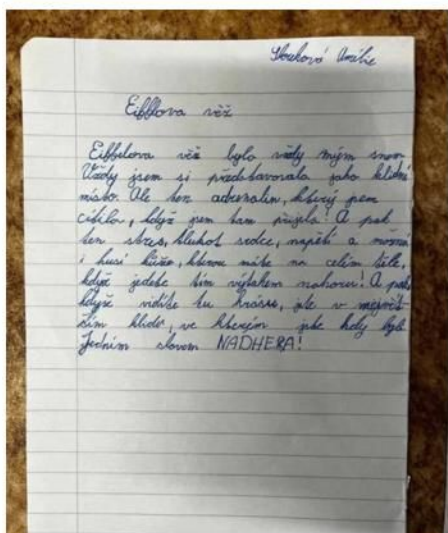 Amálie
Eifflova věž
Eiffelova věž byla vždy mým snem.
Vždy jsem si představovala jako klidné
místo. Ale ten adrenalin, který jsem
cítila, když jsem tam přijela! A pak
ten stres, tlukot srdce, napětí a možná
i husí kůže, kterou máte na celém těle,
když jedete tím výtahem nahoru! A pak,
když vidíte tu krásu, jste v největ-
ším klidu, ve kterým jste kdy byli.
Jedním slovem NÁDHERA!